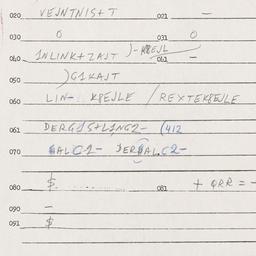 020 VEJNTNIST 021 -
030 0 031 0
040 1NLINK+ZAJT )-KREJL 041 -
050 )G1KAJT
060 LIN- KREJLE / REXTEKREJLE
061 DERG1S+L1NG2- (412
070 SALC2- DERSAL.C2-
080 $ 081 + QRR = -
090 -
091 $